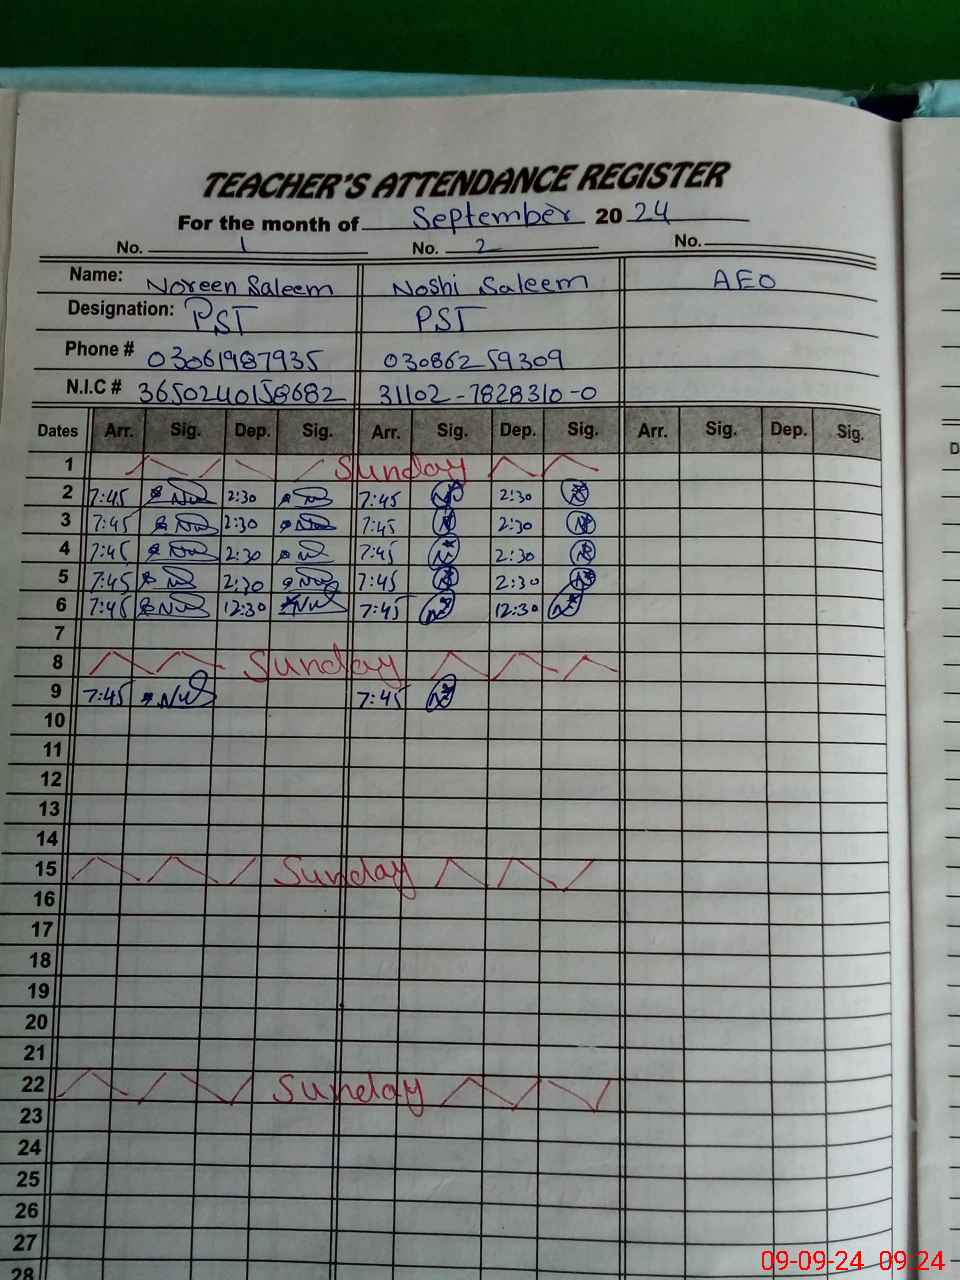 TEACHER'S ATTENDANCE REGISTER
For the month of September 2024
No. 1 No. 2 No.
Name: Noreen Saleem Noshi Saleem AEO
Designation: PST PST
Phone # 03061987935 03086259309
N.I.C # 3650240158682 31102-7828310-0
Dates Arr. Sig. Dep. Sig. Arr. Sig. Dep. Sig. Arr. Sig. Dep. Sig.
1 Sunday
2 7:45 2:30 7:45 2:30
3 7:45 2:30 7:45 2:30
4 7:45 2:30 7:45 2:30
5 7:45 2:30 7:45 2:30
6 7:45 12:30 7:45 12:30
7
8 Sunday
9 7:45 7:45
10
11
12
13
14
15 Sunday
16
17
18
19
20
21
22 Sunday
23
24
25
26
27
28
D
09-09-24 09:24